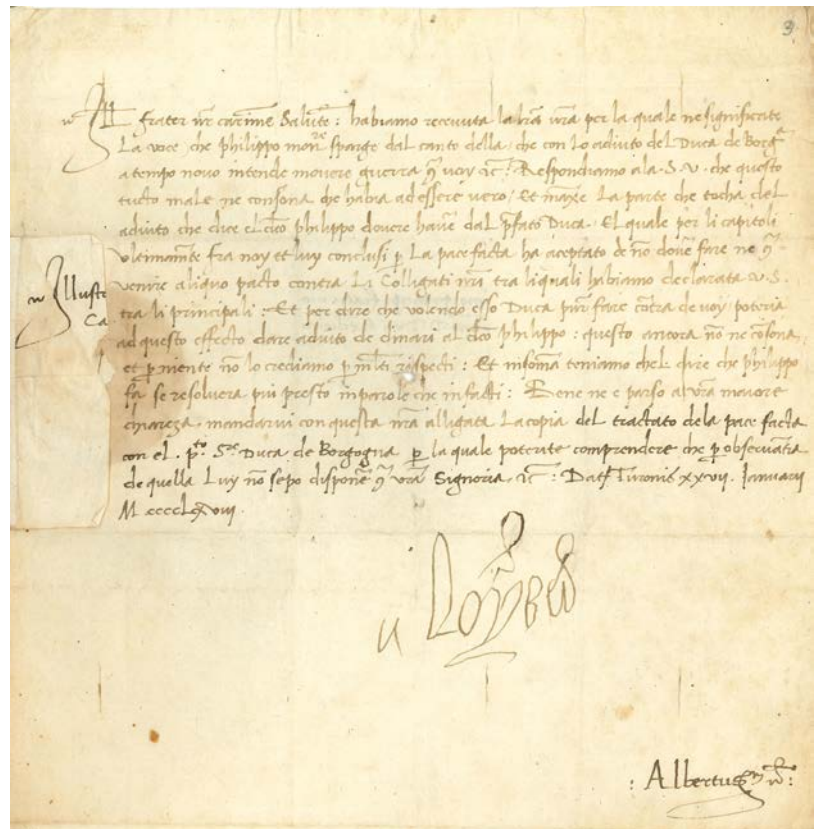 3
Ill Frater nr̄ car̄ime Salut̄e : habiamo recevuta la lr̄a vr̄a per la quale ne significate
La voce, che philippo mon^re sparge dal canto della, che con lo adiuto del Duca de Borg^a
a tempo novo intende movere guerra ꝯ voy ⁊c̄: Respondiamo a la .S.V. che questo
tucto male ne consona che habia ad essere vero / Et max̄e La parte che tocha del
adiuto che dice el d̄co philippo dovere hav̄e dal p̄fato Duca. El quale per li capitoli
ultimam̄te fra noy et luy conclusi ꝑ La pace facta ha aceptato de nō dov̄e fare ne ꝯ
venire aliquo pacto contra Li Colligati nr̄i tra li quali habiamo declarata v. S.
tra li principali : Et per dire che volendo esso Duca pur fare cōtra de voy / poteria
ad questo effecto dare adiuto de dinari al d̄co philippo : questo ancora nō ne cōsona,
et ꝑ niente nō lo crediamo ꝑ ml̄ti rispecti : Et insōma teniamo chel dire che philippo
fa se resolvera piu presto in parole che in facti : Bene ne e parso a vr̄a maiore
chiareza, mandarvi con questa nr̄a alligata La copia del tractato dela pace facta
con el . p^to. S^re Duca de Borgogna ꝑ la quale poterite comprendere che ꝑ observantia
de quella Luy nō se po dispon̄e ꝯ vr̄a Signoria, ⁊c̄ : Dat̄ Turonis xxvij. Januarij
M ccccLxviij.
Illust
Ca
Loyˢ
: Albertus